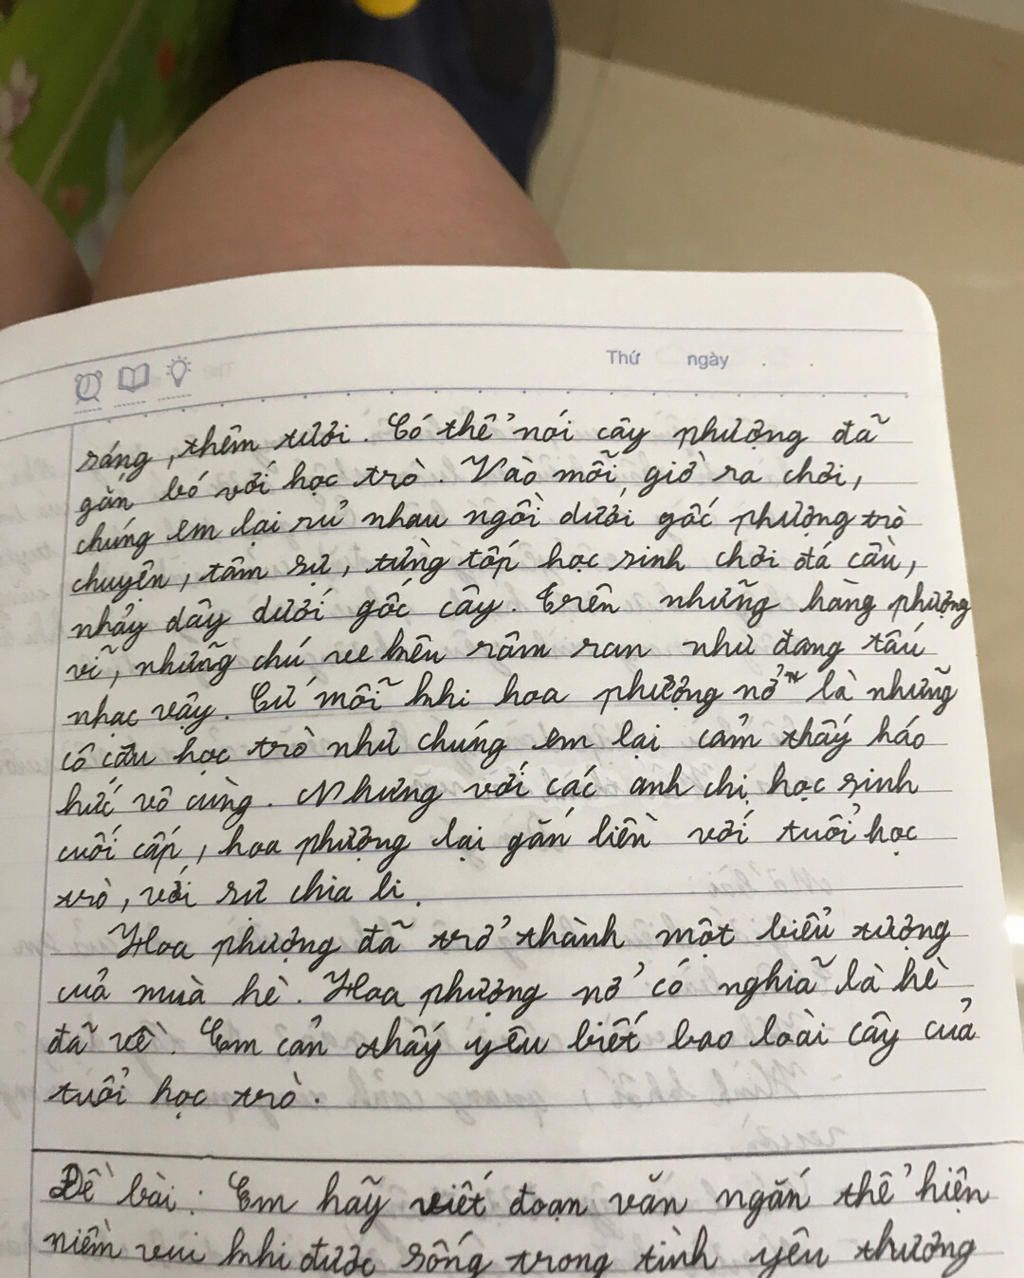 Thứ ngày
sáng, thêm tươi. Có thể nói cây phượng đã
gắn bó với học trò. Vào mỗi giờ ra chơi,
chúng em lại rủ nhau ngồi dưới gốc phượng trò
chuyện, tâm sự, từng tốp học sinh chơi đá cầu,
nhảy dây dưới gốc cây. Trên những hàng phượng
vĩ, những chú ve kêu râm ran như đang tấu
nhạc vậy. Cứ mỗi khi hoa phượng nở là những
cô cậu học trò như chúng em lại cảm thấy háo
hức vô cùng. Nhưng với các anh chị học sinh
cuối cấp, hoa phượng lại gắn liền với tuổi học
trò, với sự chia li.
Hoa phượng đã trở thành một biểu tượng
của mùa hè. Hoa phượng nở có nghĩa là hè
đã về. Em cản thấy yêu biết bao loài cây của
tuổi học trò.
Đề bài: Em hãy viết đoạn văn ngắn thể hiện
niềm vui khi được sống trong tình yêu thương